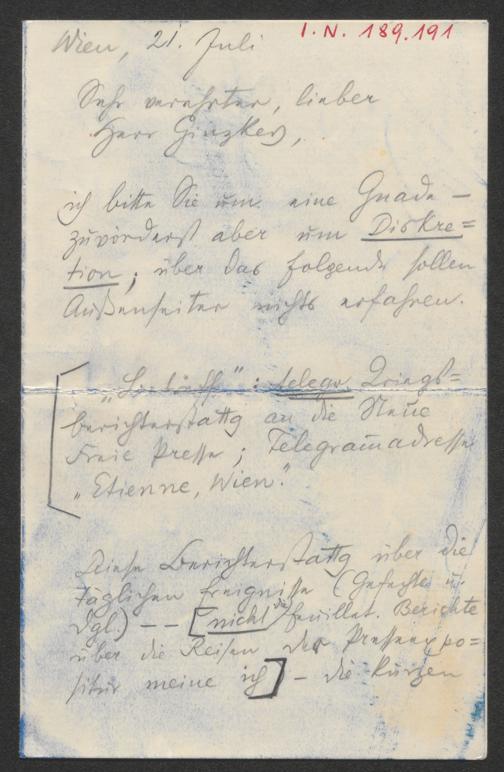 I. N. 189.191
Wien, 21. Juli
Sehr verehrter, lieber
Herr Ginzkey,
ich bitte Sie um eine Gnade –
zuvörderst aber um Diskre=
tion; über das folgende sollen
Außenseiter nichts erfahren.
: telegr. Kriegs=
berichterstattg an die Neue
Freie Presse; Telegram̄adresse
„Etienne, Wien".
Diese Berichterstattg über die
täglichen Ereignisse (Gefechte u.
dgl.) – – [nicht die feuillet. Berichte
über die Reisen der Presseexpo=
situr meine ich] – die kurzen